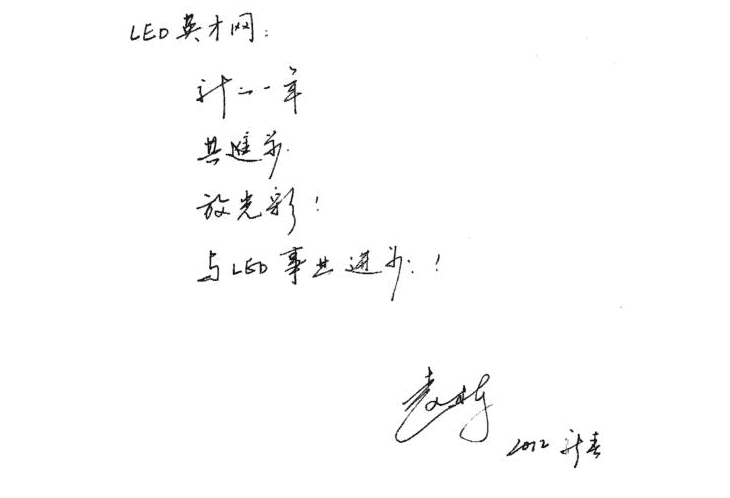 LED英才网：
新的一年
共進步
放光彩！
与LED事业进步！
2012 新春